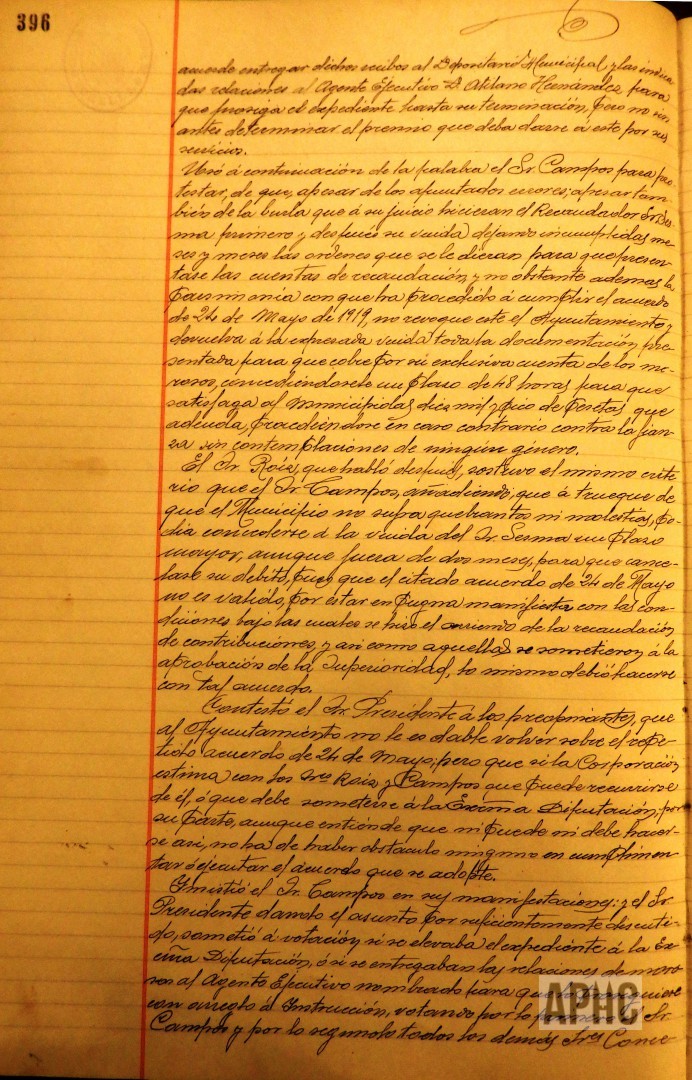 396
acuerde entregar dichos recibos al Depositario Municipal y las indica
das relaciones al Agente Ejecutivo D. Atilano Hernández para
que prosiga el expediente hasta su terminación, pero no sin
antes determinar el premio que deba darse á este por sus
servicios.
Usó á continuación de la palabra el Sr. Campos para pro-
testar, de que, apesar de los apuntados errores; apesar tam-
bién de la burla que á su juicio hicieran el Recaudador Sr. Ser-
ma primero y después su viuda dejando incumplidas me-
ses y meses las ordenes que se le dieran para que presen-
tase las cuentas de recaudación y no obstante ademas la
parsimonia con que ha procedido á cumplir el acuerdo
de 24 de Mayo de 1919, no revoque este el Ayuntamiento y
devuelva á la expresada viuda toda la documentación pre-
sentada para que cobre por su exclusiva cuenta de los mo-
rosos, concediéndosele un plazo de 48 horas para que
satisfaga al Municipio las diez mil y pico de pesetas que
adeuda, procediéndose en caso contrario contra la fian-
za sin contemplaciones de ningún género.
El Sr. Roiz, que habló después, sostuvo el mismo crite-
rio que el Sr. Campos, añadiendo, que á trueque de
que el Municipio no sufra quebrantos ni molestias, po-
dia concederse á la viuda del Sr. Serma un plazo
mayor, aunque fuera de dos meses, para que cance-
lase su debito, pues que el citado acuerdo de 24 de Mayo
no es valido, por estar en pugna manifiesta con las con-
diciones bajo las cuales se hizo el arriendo de la recaudación
de contribuciones, y asi como aquellas se sometieron á la
aprobación de la Superioridad, lo mismo debió hacerse
con tal acuerdo.
Contestó el Sr. Presidente á los preopinantes, que
al Ayuntamiento no le es dable volver sobre el repe-
tido acuerdo de 24 de Mayo; pero que si la Corporación
estima con los Sres Roiz y Campos que puede recurrirse
de él, ó que debe someterse á la Excma Diputación, por
su parte, aunque entiende que ni puede ni debe hacer-
se asi, no ha de haber obstáculo ninguno en cumplimen
tar ó ejecutar el acuerdo que se adopte.
Insistió el Sr. Campos en sus manifestaciones; y el Sr.
Presidente dando el asunto por suficientemente descuti-
do, sometió á votación si se elevaba el expediente á la Ex-
cma Diputación, ó si se entregaban las relaciones de moro
sos al Agente Ejecutivo nombrado para que
con arreglo á Instrucción, votando por lo primero el Sr.
Campos y por lo segundo todos los demás Sres Conce
APHC